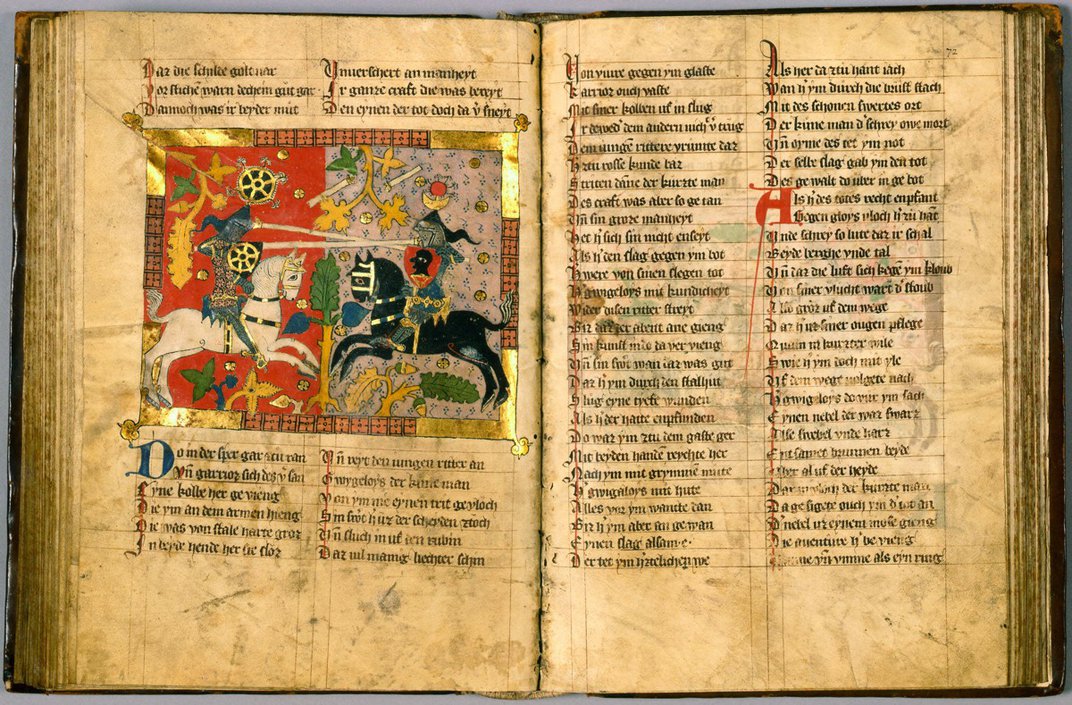 Dar die schilde golt uar
Vor stiche warn dechein gůt gar
Dannoch was ir beyder můt
Vnuerschert an manheyt
Ir ganze craft die was bereyt
Den eynen der tot doch da v̄sneyt
Do in der sper gar zcu ran
Vn̄ garrior sich des v̄san
Eyne kolbe her ge vieng
Die ym an dem armen hieng
Die was von stale harte groz
In beyde hende her sie sloz
Vn̄ reyt den iungen ritter an
Gwygeloys der kune man
Von ym nie eynen trit gevloch
Sin swert h' uz der scheyden zcoch
Vn̄ sluch in uf den rubin
Dar vil manig liechter schin
Von vůre gegen ym glaste
Karrior ouch vaste
Mit siner kolben uf in slug
Ir dewed' dem andern nich v̄trug
Dem iunge rittere
Hzcu rosse kunde bar
Striten dāne der kurze man
Des craft was aber so ge tan
Vn̄ sin groze manheyt
Het h' sich sin nicht enseyt
Als h' den slag gegen ym bot
H' were von sinen slegen tot
H' gwigeloys mit kundicheyt
Wider disen ritter streyt
Biz daz der abent ane gieng
Sin kunst da ver vieng
Vn̄ sin swert wan iz was gut
Daz h' ym durch den stalhut
Slug eyne tyefe wunden
Als h' der hatte enpfunden
Do war ym zcu dem gaste ger
Mit beyden handē reychte her
Nach ym mit grymme mute
H' gwigaloys mit hute
Alles vor ym wante dan
Biz h' ym aber an ge wan
Eynen slag alsam e
Der tet ym h'zcelichen we
Als her da zcu hant iach
Wan h' ym durch die brust stach
Mit des schonen swertes ort
Der kune man d' schrey owe mort
Vn̄ oyme des tet ym not
Der selbe slag gab ym den tot
Des ge walt do uber in ge bot
Als h' des totes recht enpfant
Gegen gloys vloch h' zcu hāt
Vnde schrey so lute daz iz schal
Beyde berghe vnde tal
Vn̄ daz die luft sich kegē ym kloub
Von siner vlucht wart d' stoub
Also groz uf dem wege
Daz h' uz siner ougen pflege
Quam in kurzer wile
Swie h' ym doch mit yle
Vf dem wege volgete nach
H' gwigeloys do vor ym sach
Eynen nebel der war swarz
Alse swebel vnde harz
beyde
Vber al uf der heyde
der kurze man
Da ge sigete ouch ym d' tot an
D' nebel uz eynem mose gieng
Die auentůre h' be vieng
vn̄ ymme als eyn ring
72